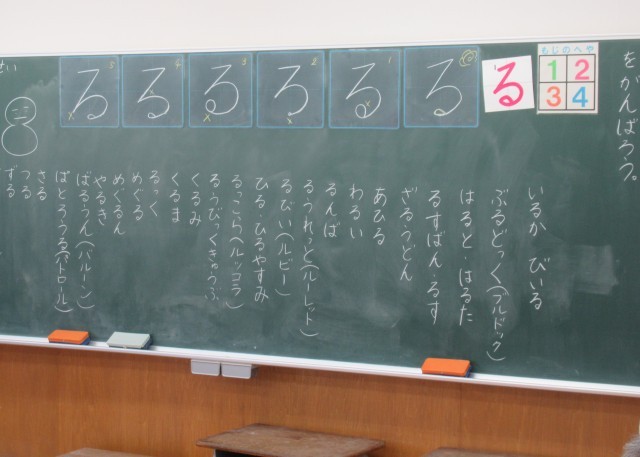 をがんばろう。
もじのへや
1 2
3 4
る
る
る
る
る
る
る
いるか びいる
ぶるどっく(ブルドック)
はると・はるた
るすばん・るす
ざる・うどん
あひる
わるい
るんば
る・うれっと(ルーレット)
るびい(ルビー)
ひる・ひるやすみ
る・こら(ルッコラ)
る・うびっくきゅうぶ
くるみ
くるま
るっく
めぐる
めぐるん
やるき
ばるうん(バルーン)
ぱとろうる(パトロール)
さる
つる
ずる
せい